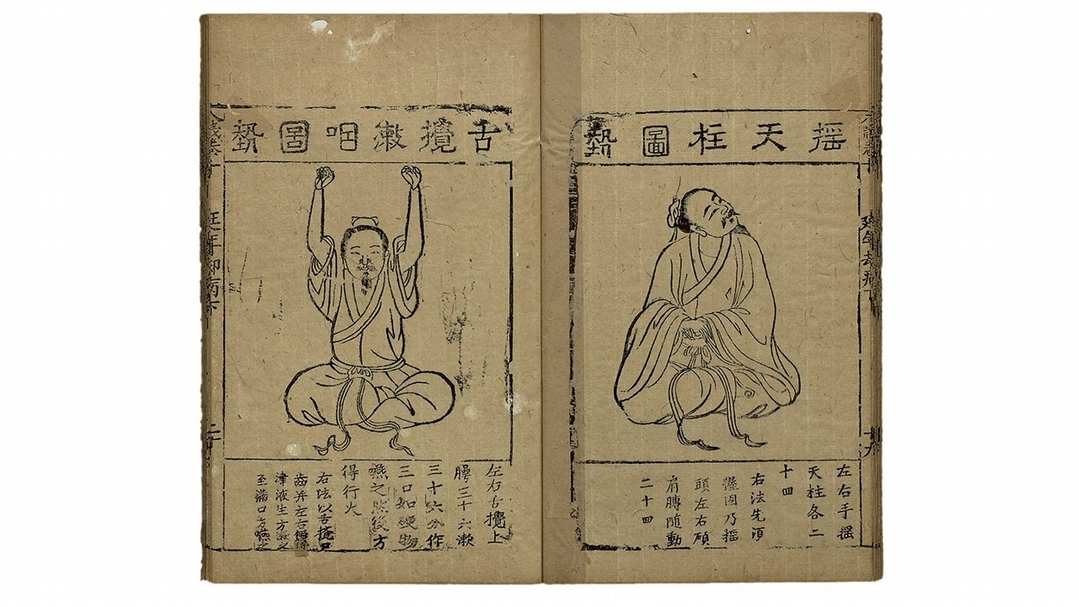 搖天柱圖勢
左右手搖
天柱各二
十四
右法先須
握固乃搖
頭左右顧
肩膊隨動
二十四
延年却病下
十九
舌攪漱咽圖勢
左右舌攪上
腭三十六漱
三十六分作
三口如硬物
嚥之然後方
得行火
右法以舌攪口
齒并左右頰
津液生方漱之
至滿口方嚥之
延年却病下
二十